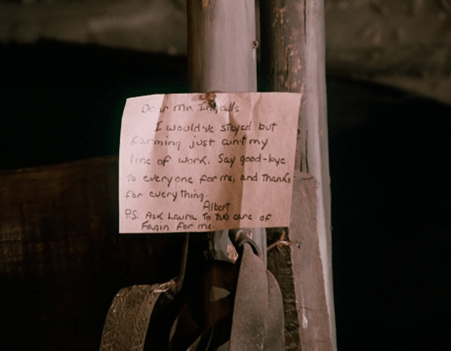 Dear Mr. Ingalls
I would've stayed but
farming just ain't my
line of work. Say good-bye
to everyone for me, and thanks
for everything.
Albert
P.S. Ask Laura to take care of
Fagin for me.